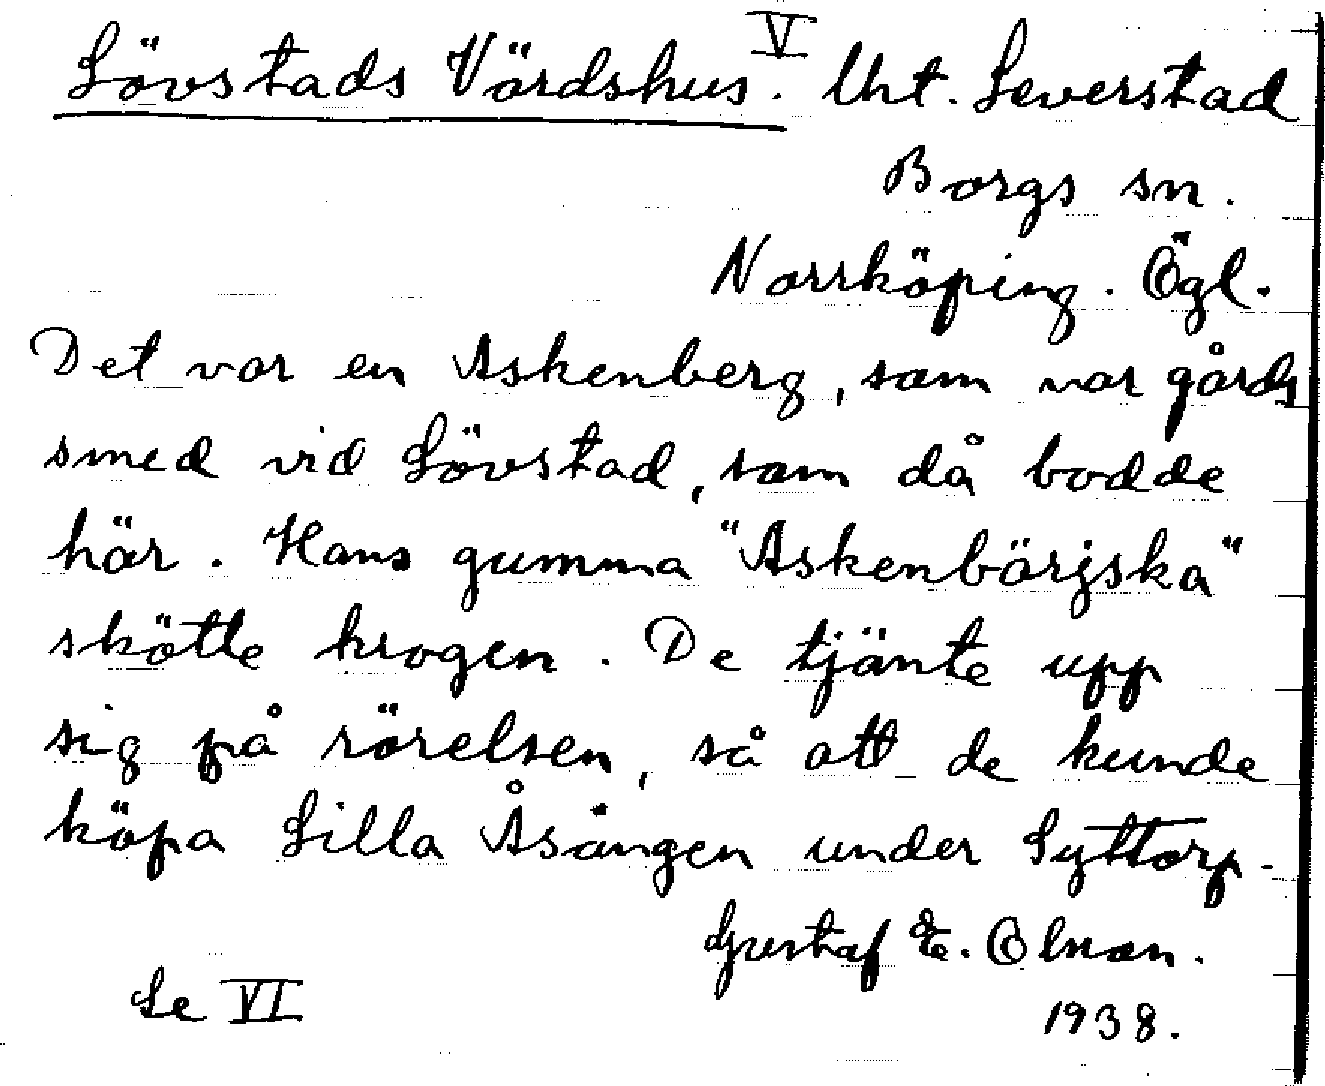 Lövstads Värdshus. V Uht. Leverstad
Borgs sn.
Norrköping. Ögl.
Det var en Askenberg, som var gårds
smed vid Lövstad, som då bodde
här. Hans gumma "Askenbärjska"
skötte krogen. De tjänte upp
sig på rörelsen, så att de kunde
köpa Lilla Åsängen under Lyttorp.
Gustaf E. Olman.
Se VI
1938.